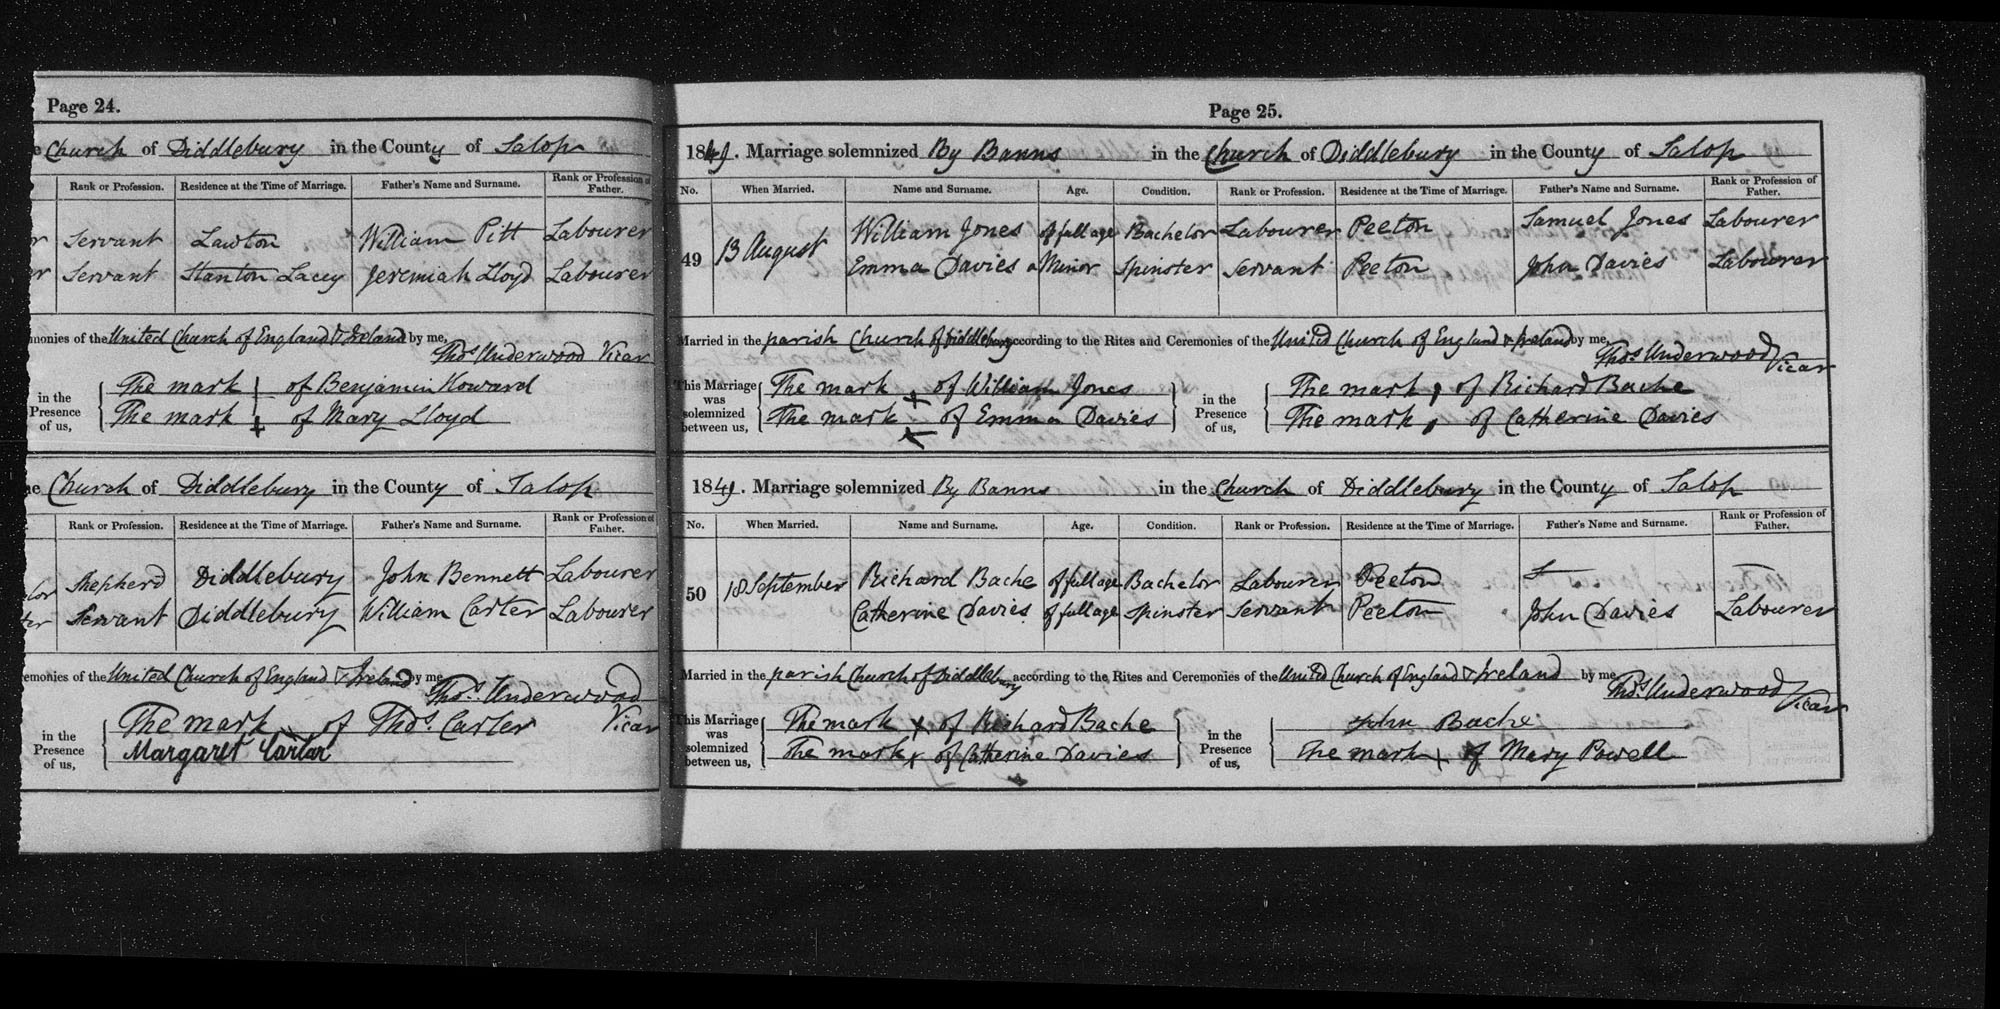 Page 24.
e Church of Diddlebury in the County of Salop
Rank or Profession. Residence at the Time of Marriage. Father's Name and Surname. Rank or Profession of Father.
r Servant Lawton William Pitt Labourer
er Servant Stanton Lacey Jeremiah Lloyd Labourer
monies of the United Church of England & Ireland by me,
Thos. Underwood Vicar
in the Presence of us,
The mark + of Benjamin Howard
The mark + of Mary Lloyd
he Church of Diddlebury in the County of Salop
Rank or Profession. Residence at the Time of Marriage. Father's Name and Surname. Rank or Profession of Father.
lor Shepherd Diddlebury John Bennett Labourer
ter Servant Diddlebury William Carter Labourer
emonies of the United Church of England & Ireland by me,
Thos. Underwood
Vicar
in the Presence of us,
The mark x of Thos. Carter
Margaret Cartar
Page 25.
1849. Marriage solemnized By Banns in the Church of Diddlebury in the County of Salop
No. When Married. Name and Surname. Age. Condition. Rank or Profession. Residence at the Time of Marriage. Father's Name and Surname. Rank or Profession of Father.
49 13 August William Jones of full age Bachelor Labourer Peeton Samuel Jones Labourer
Emma Davies a Minor Spinster Servant Peeton John Davies Labourer
Married in the parish Church of Diddlebury according to the Rites and Ceremonies of the United Church of England & Ireland by me,
Thos. Underwood
Vicar
This Marriage was solemnized between us,
The mark + of William Jones
The mark x of Emma Davies
in the Presence of us,
The mark , of Richard Bache
The mark , of Catherine Davies
1849. Marriage solemnized By Banns in the Church of Diddlebury in the County of Salop
No. When Married. Name and Surname. Age. Condition. Rank or Profession. Residence at the Time of Marriage. Father's Name and Surname. Rank or Profession of Father.
50 18 September Richard Bache of full age Bachelor Labourer Peeton — —
Catherine Davies of full age Spinster Servant Peeton John Davies Labourer
Married in the parish Church of Diddlebury according to the Rites and Ceremonies of the United Church of England & Ireland by me,
Thos. Underwood
Vicar
This Marriage was solemnized between us,
The mark x of Richard Bache
The mark x of Catherine Davies
in the Presence of us,
John Bache
The mark + of Mary Powell